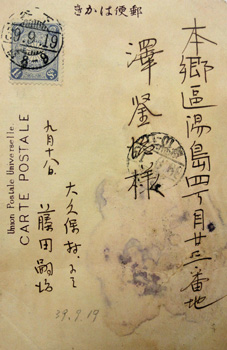 きかは便郵
本郷區湯島四丁目廿三番地
澤鑒 様
九月十八日
大久保村
藤田嗣治
Union Postale Universelle
CARTE POSTALE
39.9.19
9.9.19